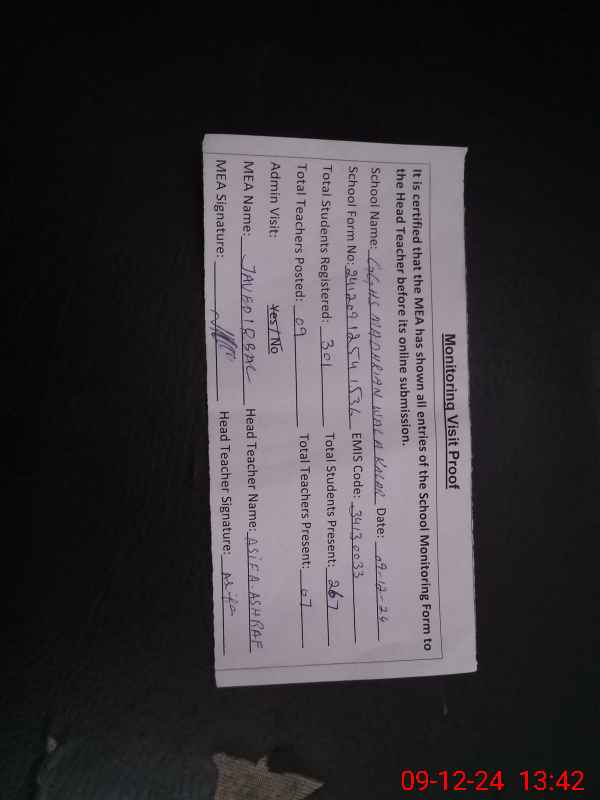 Monitoring Visit Proof
It is certified that the MEA has shown all entries of the School Monitoring Form to
the Head Teacher before its online submission.
School Name: WALA Date: 09-12-24
School Form No: 241209125541536 EMIS Code: 34130033
Total Students Registered: 301 Total Students Present: 267
Total Teachers Posted: 09 Total Teachers Present: 07
Admin Visit: Yes/No
MEA Name: JAVED IQBAL Head Teacher Name: ASIFA. ASHRAF
MEA Signature: Head Teacher Signature: Asifa
09-12-24 13:42